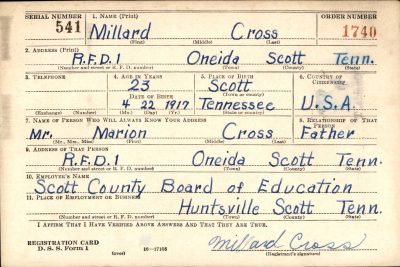 SERIAL NUMBER 1. NAME (Print) ORDER NUMBER
541 Millard Cross 1740
(First) (Middle) (Last)
2. ADDRESS (Print)
R.F.D.1 Oneida Scott Tenn.
(Number and street or R. F. D. number) (Town) (County) (State)
3. TELEPHONE 4. AGE IN YEARS 5. PLACE OF BIRTH 6. COUNTRY OF CITIZENSHIP
23 Scott
DATE OF BIRTH (Town or county)
4 22 1917 Tennessee U.S.A.
(Exchange) (Number) (Mo.) (Day) (Yr.) (State or country)
7. NAME OF PERSON WHO WILL ALWAYS KNOW YOUR ADDRESS 8. RELATIONSHIP OF THAT PERSON
Mr. Marion Cross Father
(Mr., Mrs., Miss) (First) (Middle) (Last)
9. ADDRESS OF THAT PERSON
R.F.D.1 Oneida Scott Tenn.
(Number and street or R. F. D. number) (Town) (County) (State)
10. EMPLOYER'S NAME
Scott County Board of Education
11. PLACE OF EMPLOYMENT OR BUSINESS
Huntsville Scott Tenn.
(Number and street or R. F. D. number) (Town) (County) (State)
I AFFIRM THAT I HAVE VERIFIED ABOVE ANSWERS AND THAT THEY ARE TRUE.
REGISTRATION CARD
D. S. S. Form 1 16—17105 Millard Cross
(over) (Registrant's signature)